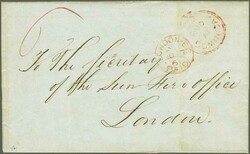 To The Secretary
of the Sun Fire Office
London.